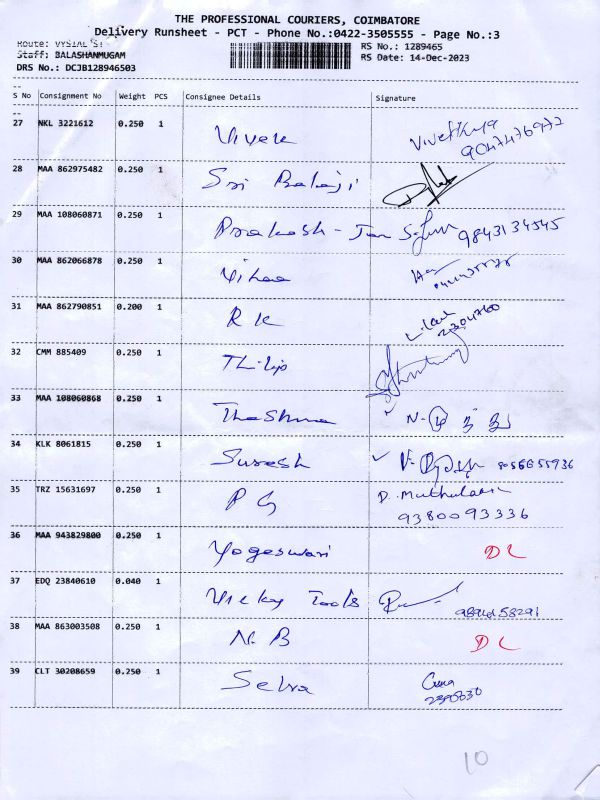 THE PROFESSIONAL COURIERS, COIMBATORE
Delivery Runsheet - PCT - Phone No.:0422-3505555 - Page No.:3
Route: VYSIAL ST
RS No.: 1289465
Staff: BALASHANMUGAM
RS Date: 14-Dec-2023
DRS No.: DCJB128946503
S No Consignment No Weight PCS Consignee Details Signature
27 NKL 3221612 0.250 1 Vivek
9047476972
28 MAA 862975482 0.250 1 Sri Balaji
29 MAA 108060871 0.250 1 Prakash - 9843134545
30 MAA 862066878 0.250 1
31 MAA 862790851 0.200 1 R K
2304760
32 CMM 885409 0.250 1 Thilip
33 MAA 108060868 0.250 1
34 KLK 8061815 0.250 1 Suresh 8056655936
35 TRZ 15631697 0.250 1 P G D. Muthulaxmi
9380093336
36 MAA 943829800 0.250 1 Yogeswari DL
37 EDQ 23840610 0.040 1 Vicky Tools
9894158291
38 MAA 863003508 0.250 1 N B DL
39 CLT 30208659 0.250 1 Selva
10